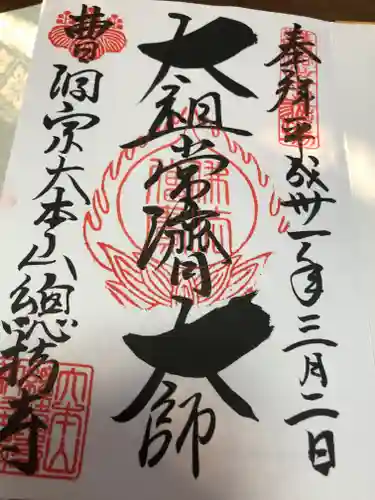 奉拝 平成卅一年三月二日
太祖常濟大師
曹洞宗大本山總持寺